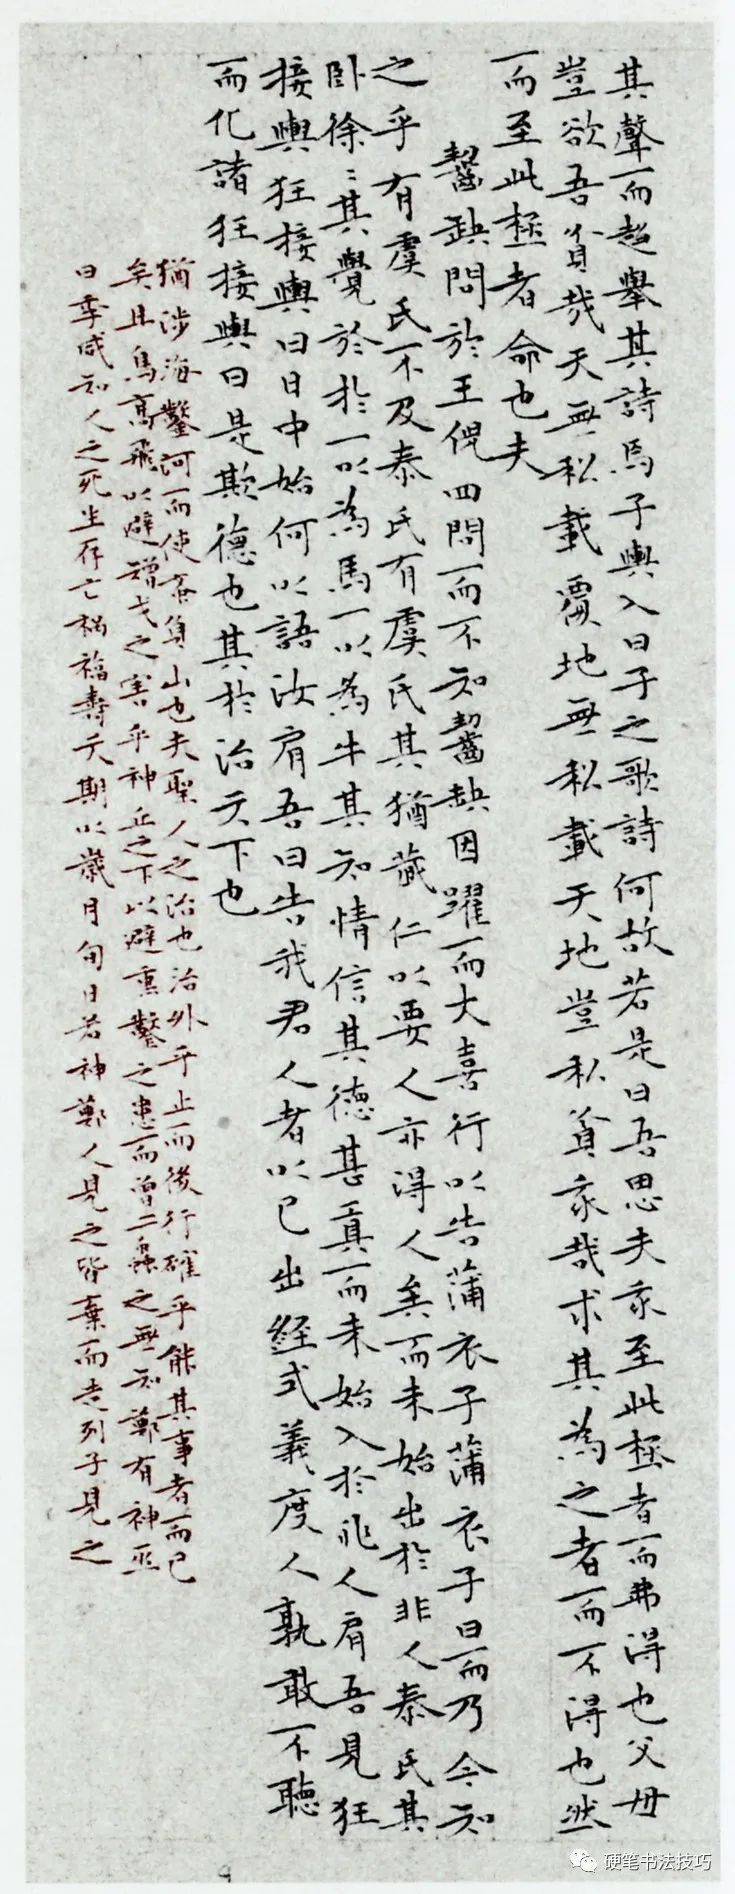 其聲而趨舉其詩焉子輿入曰子之歌詩何故若是曰吾思夫我至此極者而弗得也父母
豈欲吾貧哉天無私載覆地無私載天地豈私貧我哉求其為之者而不得也然
而至此極者命也夫
齧缺問於王倪四問而不知齧缺因躍而大喜行以告蒲衣子蒲衣子曰而乃今知
之乎有虞氏不及泰氏有虞氏其猶藏仁以要人亦得人矣而未始出於非人泰氏其
卧徐〻其覺於於一以為馬一以為牛其知情信其德甚真而未始入於非人肩吾見狂
接輿狂接輿曰日中始何以語汝肩吾曰告我君人者以己出經式義度人孰敢不聽
而化諸狂接輿曰是欺德也其於治天下也
猶涉海鑿河而使蚉負山也夫聖人之治也治外乎正而後行確乎能其事者而已
矣且鳥高飛以避矰弋之害乎神丘之下以避熏鑿之患而曾二蟲之無知鄭有神巫
曰季咸知人之死生存亡禍福壽夭期以歲月旬日若神鄭人見之皆棄而走列子見之
硬笔书法技巧